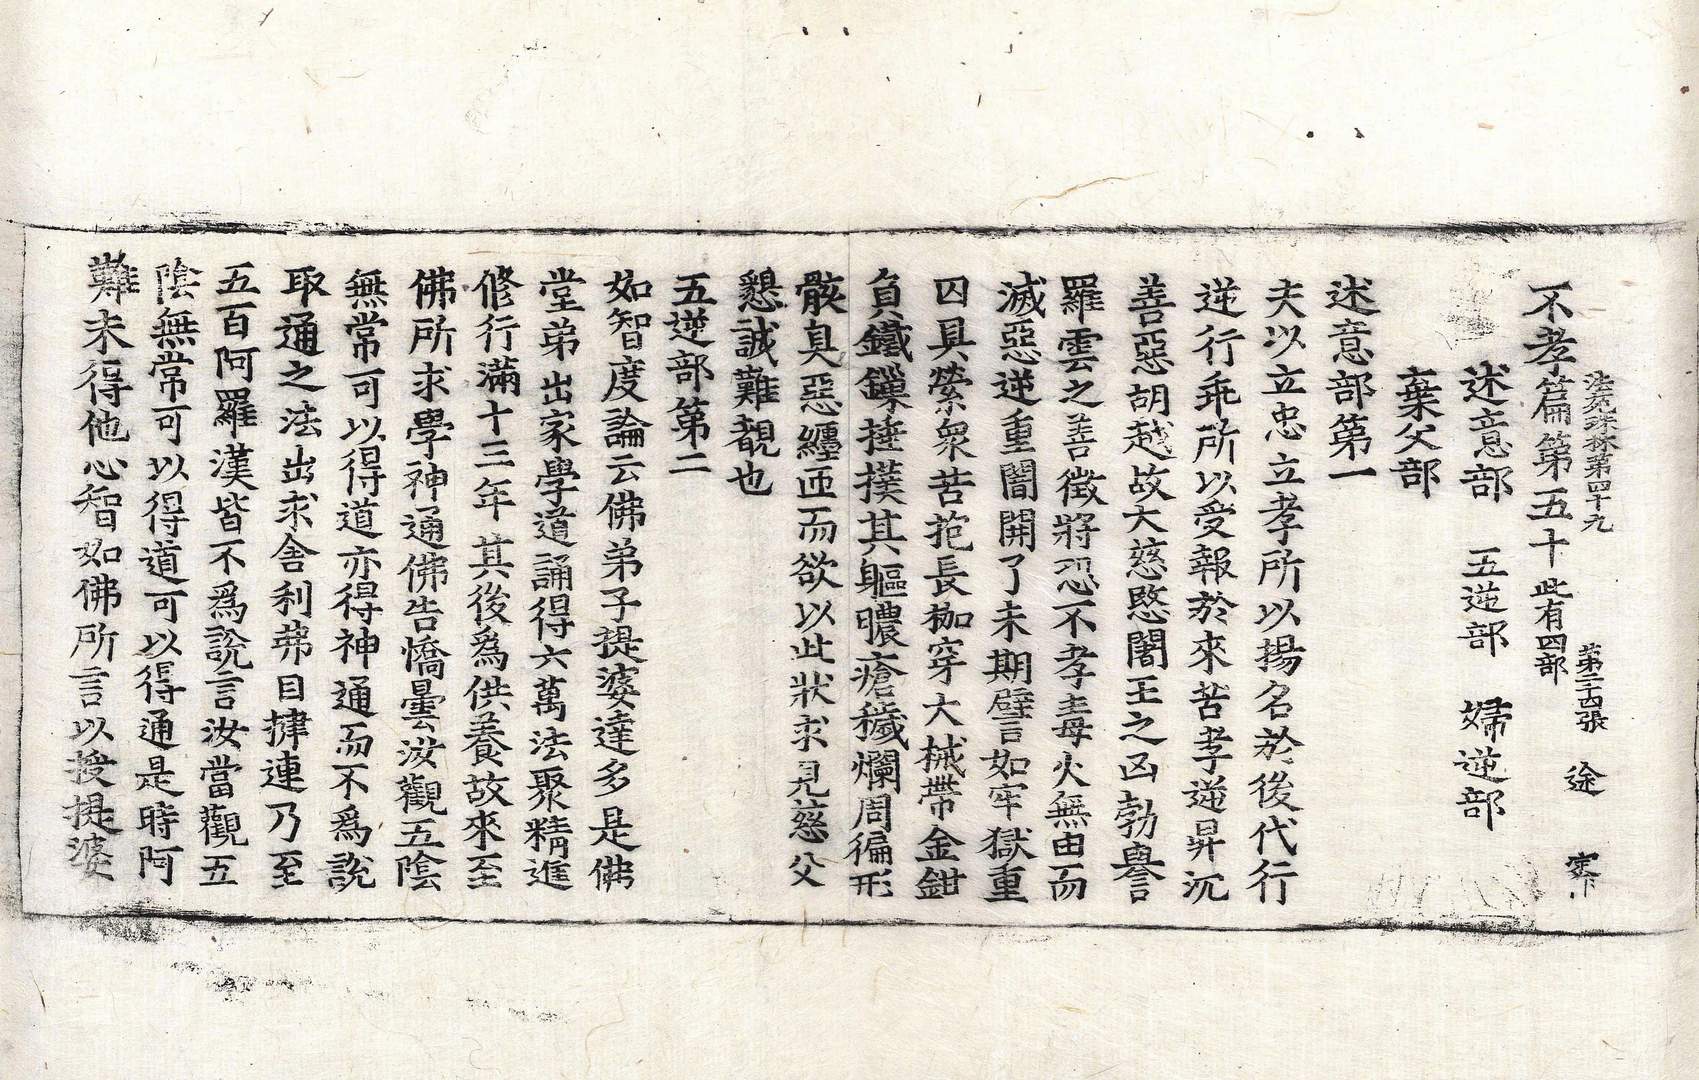 法苑珠林第四十九 第二十四張 途 寒
不孝篇第五十此有四部
述意部 五逆部 婦逆部
棄父部
述意部第一
夫以立忠立孝所以揚名於後代行
逆行乖所以受報於來苦孝逆昇沉
善惡胡越故大慈愍闍王之凶勃譽
羅雲之善徵將恐不孝毒火無由而
滅惡逆重闇開了未期譬言如牢獄重
囚具縈衆苦抱長枷穿大械帶金鉗
負鐵鏁捶撲其軀膿瘡穢爛周徧形
骸臭惡纏匝而欲以此狀求見慈父
懇誠難覩也
五逆部第二
如智度論云佛弟子提婆達多是佛
堂弟出家學道誦得六萬法聚精進
修行滿十三年其後爲供養故來至
佛所求學神通佛告憍曇汝觀五陰
無常可以得道亦得神通而不爲說
取通之法出求舍利弗目揵連乃至
五百阿羅漢皆不爲說言汝當觀五
陰無常可以得道可以得通是時阿
難未得他心智如佛所言以授提婆